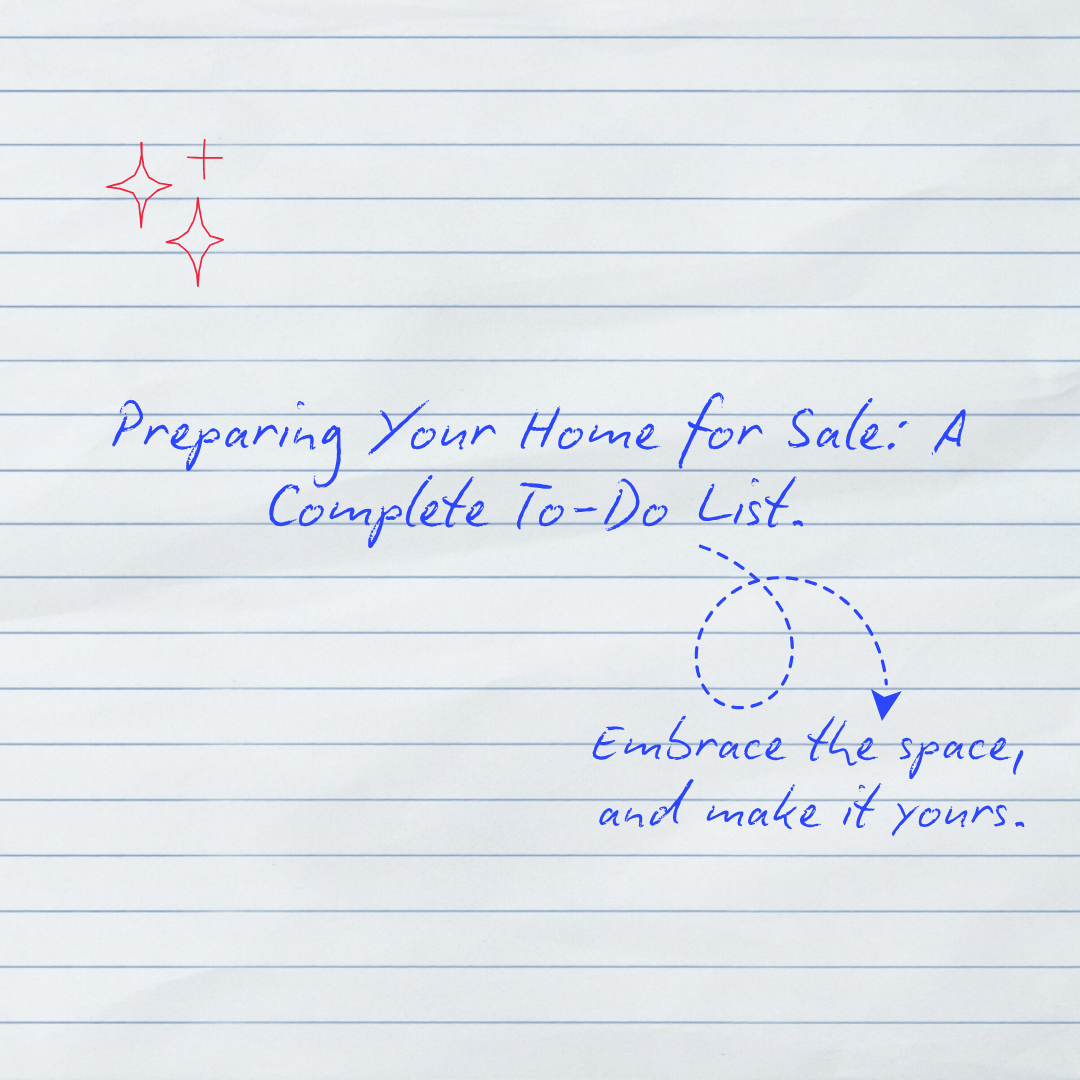 Preparing Your Home for Sale: A
Complete To-Do List.
Embrace the space,
and make it yours.